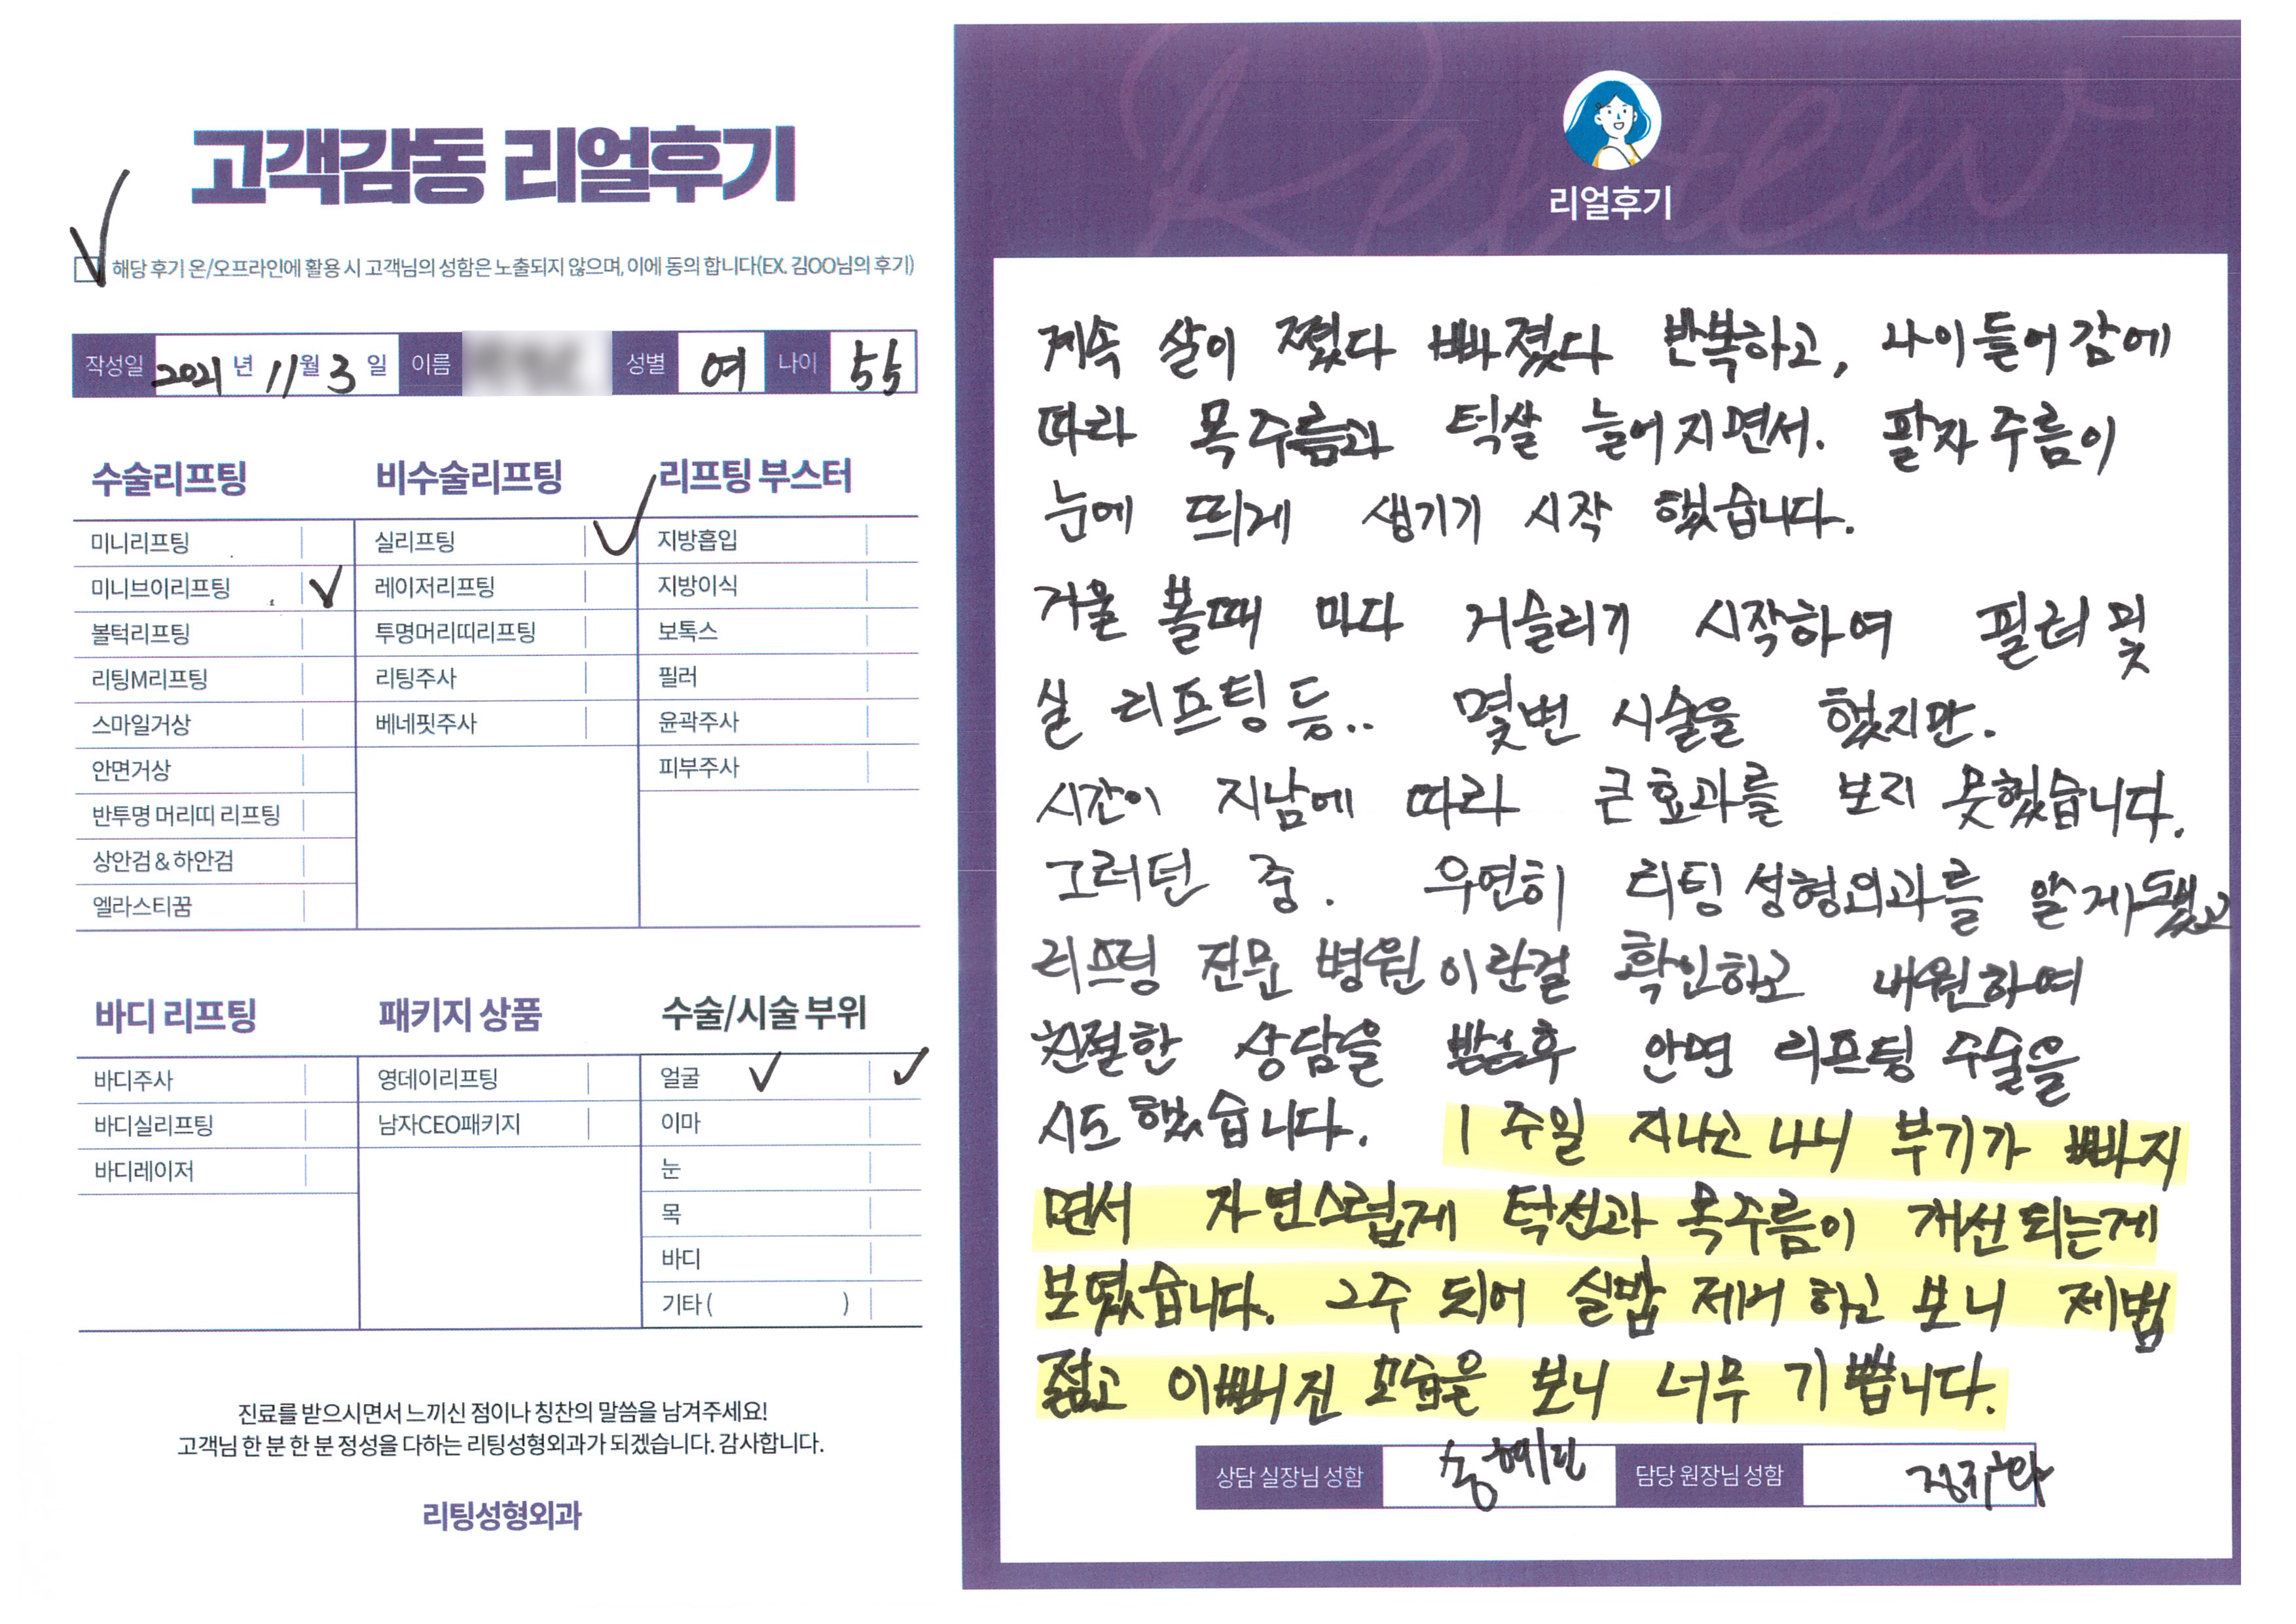 고객감동 리얼후기
해당 후기 온/오프라인에 활용 시 고객님의 성함은 노출되지 않으며, 이에 동의 합니다(EX. 김OO님의 후기)
작성일 2021 년 11 월 3 일 이름 성별 여 나이 55
수술리프팅
미니리프팅
미니브이리프팅
볼턱리프팅
리팅M리프팅
스마일거상
안면거상
반투명 머리띠 리프팅
상안검 & 하안검
엘라스티꿈
비수술리프팅
실리프팅
레이저리프팅
투명머리띠리프팅
리팅주사
베네핏주사
리프팅 부스터
지방흡입
지방이식
보톡스
필러
윤곽주사
피부주사
바디 리프팅
바디주사
바디실리프팅
바디레이저
패키지 상품
영데이리프팅
남자CEO패키지
수술/시술 부위
얼굴
이마
눈
목
바디
기타 ( )
진료를 받으시면서 느끼신 점이나 칭찬의 말씀을 남겨주세요!
고객님 한 분 한 분 정성을 다하는 리팅성형외과가 되겠습니다. 감사합니다.
리팅성형외과
Review
리얼후기
계속 살이 쪘다 빠졌다 반복하고, 나이들어감에
따라 목주름과 턱살 늘어지면서. 팔자주름이
눈에 띄게 생기기 시작 했습니다.
거울 볼때 마다 거슬리기 시작하여 필러 및
실 리프팅 등.. 몇번 시술을 했지만.
시간이 지남에 따라 큰 효과를 보지 못했습니다.
그러던 중. 우연히 리팅성형외과를 알게됐고
리프팅 전문 병원이란걸 확인하고 내원하여
친절한 상담을 받은후 안면 리프팅 수술을
시도 했습니다. 1주일 지나고 나니 부기가 빠지
면서 자연스럽게 턱선과 목주름이 개선되는게
보였습니다. 2주 되어 실밥 제거 하고 보니 제법
젊고 이뻐진 모습을 보니 너무 기쁩니다.
상담 실장님 성함 담당 원장님 성함